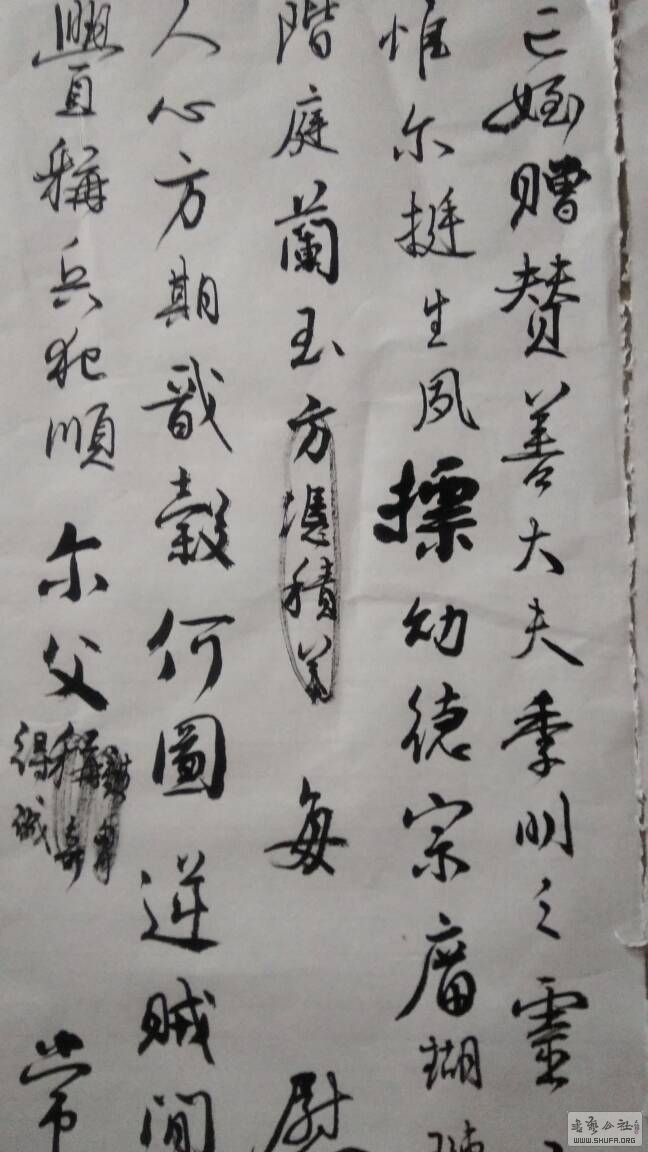 亡姪贈贊善大夫季明之靈
惟尔挺生夙標幼德宗廟瑚璉
階庭蘭玉方憑積善每慰
人心方期戩穀何圖逆賊間
舋稱兵犯順尔父常
得誠
書藝公社
WWW.SHUFA.ORG